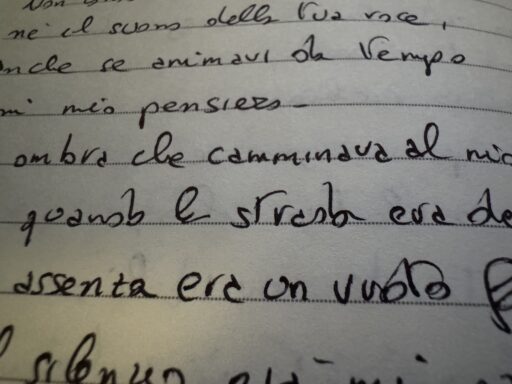 né il suono della tua voce,
anche se animavi da tempo
mio pensiero
ombra che camminava al mio
quando la strada era de
assenza era un vuoto
silenzio